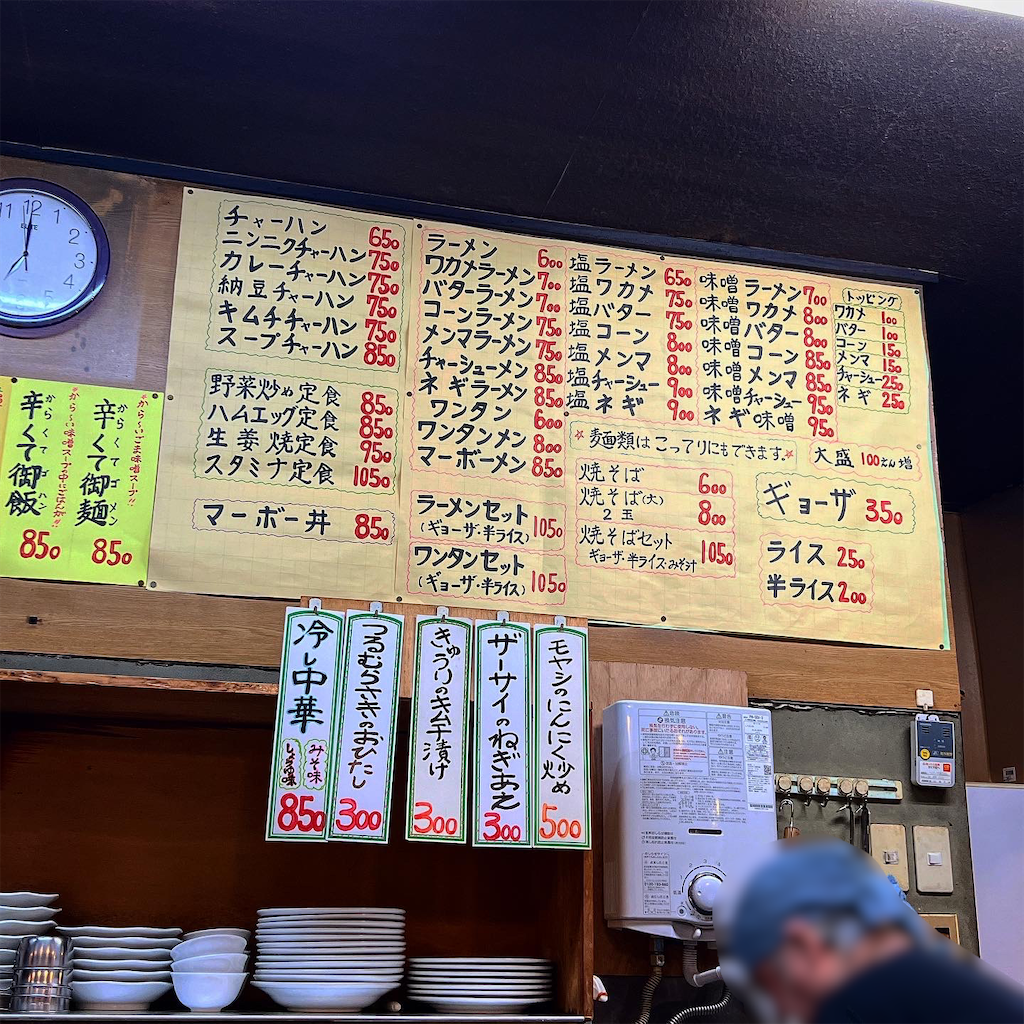 チャーハン 650
ニンニクチャーハン 750
カレーチャーハン 750
納豆チャーハン 750
キムチチャーハン 750
スープチャーハン 850
野菜炒め定食 850
ハムエッグ定食 850
生姜焼定食 950
スタミナ定食 1050
マーボー丼 850
ラーメン 600
ワカメラーメン 700
バターラーメン 700
コーンラーメン 750
メンマラーメン 750
チャーシューメン 850
ネギラーメン 850
ワンタン 600
ワンタンメン 800
マーボーメン 850
ラーメンセット 1050
(ギョーザ・半ライス)
ワンタンセット 1050
(ギョーザ・半ライス)
塩ラーメン 650
塩ワカメ 750
塩バター 750
塩コーン 800
塩メンマ 800
塩チャーシュー 900
塩ネギ 900
味噌ラーメン 700
味噌ワカメ 800
味噌バター 800
味噌コーン 850
味噌メンマ 850
味噌チャーシュー 950
ネギ味噌 950
トッピング
ワカメ 100
バター 100
コーン 150
メンマ 150
チャーシュー 250
ネギ 250
☆麺類はこってりにもできます。☆
大盛 100えん増
焼そば 600
焼そば(大) 800
2玉
焼そばセット 1050
ギョーザ・半ライス・みそ汁
ギョーザ 350
ライス 250
半ライス 200
から〜いごま味噌スープ!!
辛くて御麺
からくてゴメン
850
から〜い味噌スープの中にごはんが!!
辛くて御飯
からくてゴハン
850
冷し中華
みそ味
しょうゆ味
850
つるむらさきのおひたし
300
きゅうりのキムチ漬け
300
ザーサイのねぎあえ
300
モヤシのにんにく炒め
500
11 12 1
2
3
4
5
7